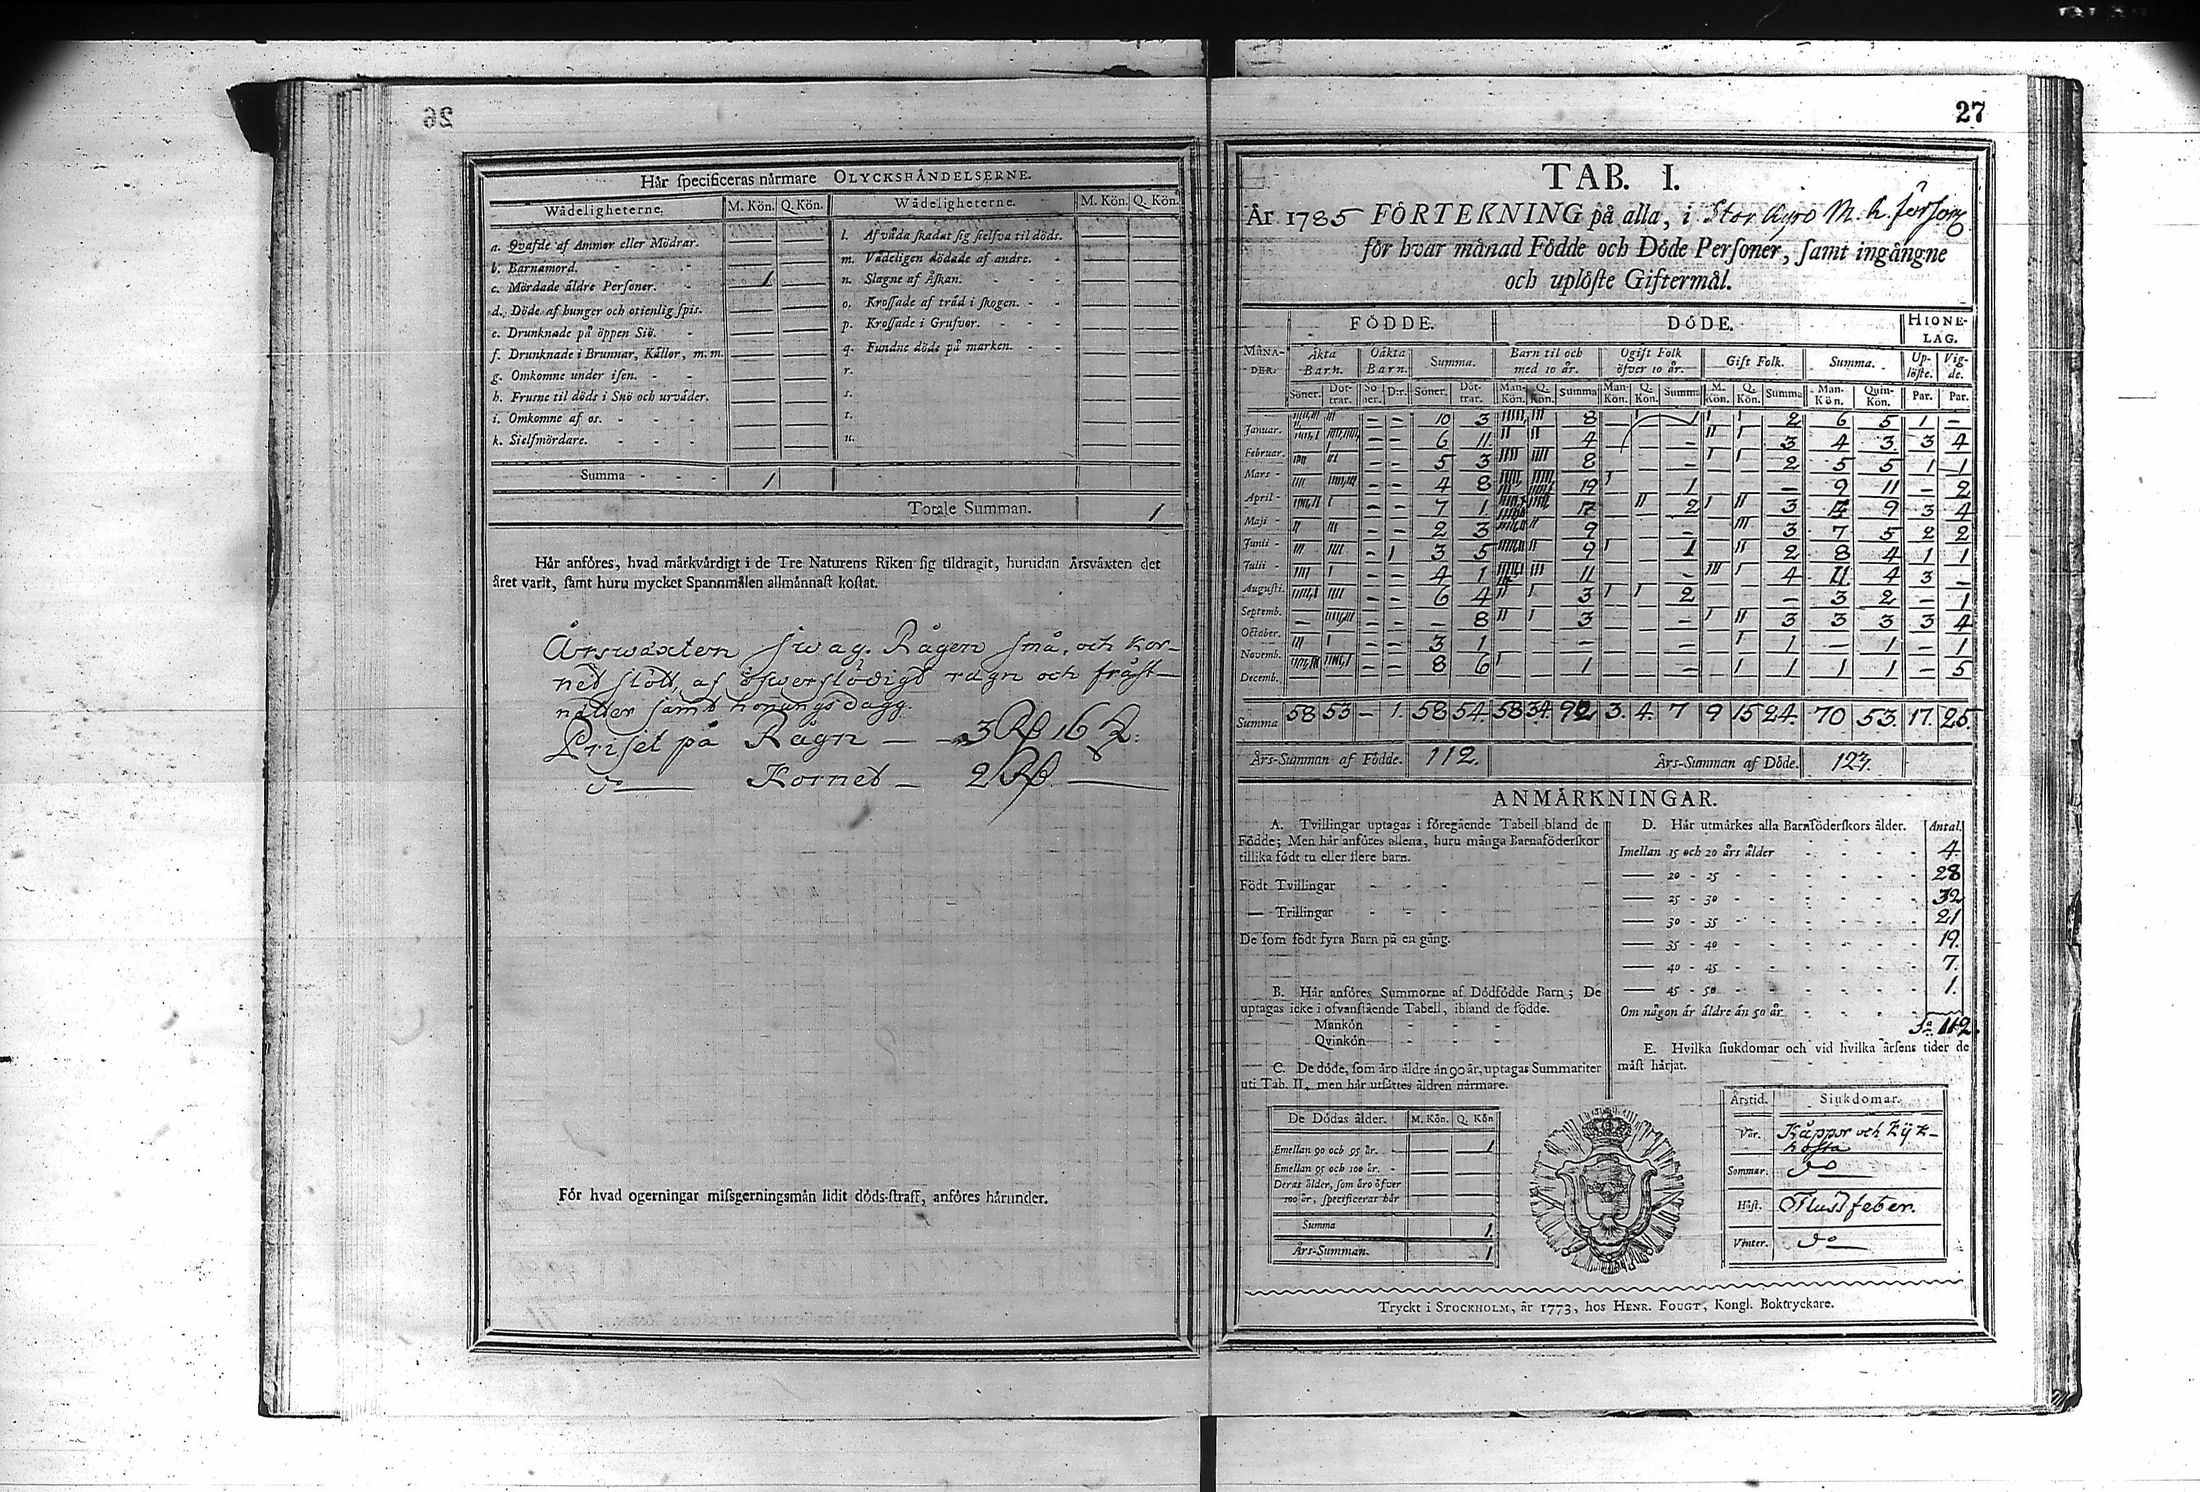 26
Här specificeras närmare OLYCKSHÄNDELSERNE.
Wådeligheterne. M. Kön. Q. Kön. Wådeligheterne. M. Kön. Q. Kön.
a. Qvafde af Ammor eller Mödrar. — — l. Af våda skadat sig sielfva til döds. — —
b. Barnamord. — — m. Vådeligen dödade af andre. — —
c. Mördade äldre Personer. 1 — n. Slagne af Åskan. — —
d. Döde af hunger och otienlig spis. — — o. Krossade af träd i skogen. — —
e. Drunknade på öppen Siö. — — p. Krossade i Grufvor. — —
f. Drunknade i Brunnar, Källor, m. m. — — q. Fundne döde på marken. — —
g. Omkomne under isen. — — r.
h. Frusne til döds i Snö och urväder. — — s.
i. Omkomne af os. — — t.
k. Sielfmördare. — — u.
Summa 1
Totale Summan. 1
Här anföres, hvad märkvärdigt i de Tre Naturens Riken sig tildragit, hurudan Årsväxten det
året varit, samt huru mycket Spannmålen allmännast kostat.
Årswäxten swag. Rågen små, och kor-
net slött af öfwerflödigt rägn och fråst-
nätter samt honungsdagg.
Priset på Rågn — 3 Rd 16 s:
do — Kornet — 2 Rd. —
För hvad ogerningar missgerningsmän lidit döds-straff, anföres härunder.
27
TAB. I.
År 1785 FÖRTEKNING på alla, i Stor Kyro M. k. försam
för hvar månad Födde och Döde Personer, samt ingångne
och uplöste Giftermål.
FÖDDE. DÖDE. HIONE-LAG.
MÅNA-DER. Äkta Barn. Oäkta Barn. Summa. Barn til och med 10 år. Ogift Folk öfver 10 år. Gift Folk. Summa. Up-löste. Vig-de.
Söner. Döt-trar. Sö-ner. D:r. Söner. Döt-trar. Man-Kön. Q. Kön. Summa Man-Kön. Q. Kön. Summ. M. Kön. Q. Kön. Summa Man-Kön. Quin-Kön. Par. Par.
Januar. — — 10 3 8 1 2 6 5 1 —
Februar. — — 6 11 4 — 3 4 3 3 4
Mars — — 5 3 8 — 2 5 5 1 1
April — — 4 8 19 1 — 9 11 — 2
Maji — — 7 1 17 2 3 9 3 4
Junii — — 2 3 9 — 3 7 5 2 2
Julii — 1 3 5 9 1 2 8 4 1 1
Augusti. — — 4 1 11 — 4 11 4 3 —
Septemb. — — 6 4 3 2 — 3 2 — 1
October. — — — 8 3 — 3 3 3 3 4
Novemb. — — 3 1 — — 1 — 1 — 1
Decemb. — — 8 6 1 — 1 1 1 — 5
Summa 58 53 — 1. 58 54. 58 34. 92 3. 4. 7 9 15 24. 70 53. 17. 25.
Års-Summan af Födde. 112. Års-Summan af Döde. 123.
ANMÄRKNINGAR.
A. Tvillingar uptagas i föregående Tabell bland de
Födde; Men här anföres allena, huru många Barnaföderskor
tillika födt tu eller flere barn.
Födt Tvillingar
— Trillingar
De som födt fyra Barn på en gång.
B. Här anföres Summorne af Dödfödde Barn; De
uptagas icke i ofvanstående Tabell, ibland de födde.
Mankön
Qvinkön
C. De döde, som äro äldre än 90 år, uptagas Summariter
uti Tab. II, men här utsättes åldren närmare.
De Dödas ålder. M. Kön. Q. Kön
Emellan 90 och 95 år. — 1
Emellan 95 och 100 år. — —
Deras ålder, som äro öfver
100 år, specificeras här
Summa 1.
Års-Summan. 1
D. Här utmärkes alla Barnföderskors ålder. Antal.
Imellan 15 och 20 års ålder 4.
— 20 - 25 28
— 25 - 30 32
— 30 - 35 21
— 35 - 40 19.
— 40 - 45 7.
— 45 - 50 1.
Om någon är äldre än 50 år
Sa 112.
E. Hvilka siukdomar och vid hvilka årsens tider de
mäst härjat.
Årstid. Siukdomar.
Vår. Kåppor och kyk-
hosta
Sommar. do
Höst. Fluss feber.
Vinter. do
Tryckt i STOCKHOLM, år 1773, hos HENR. FOUGT, Kongl. Boktryckare.